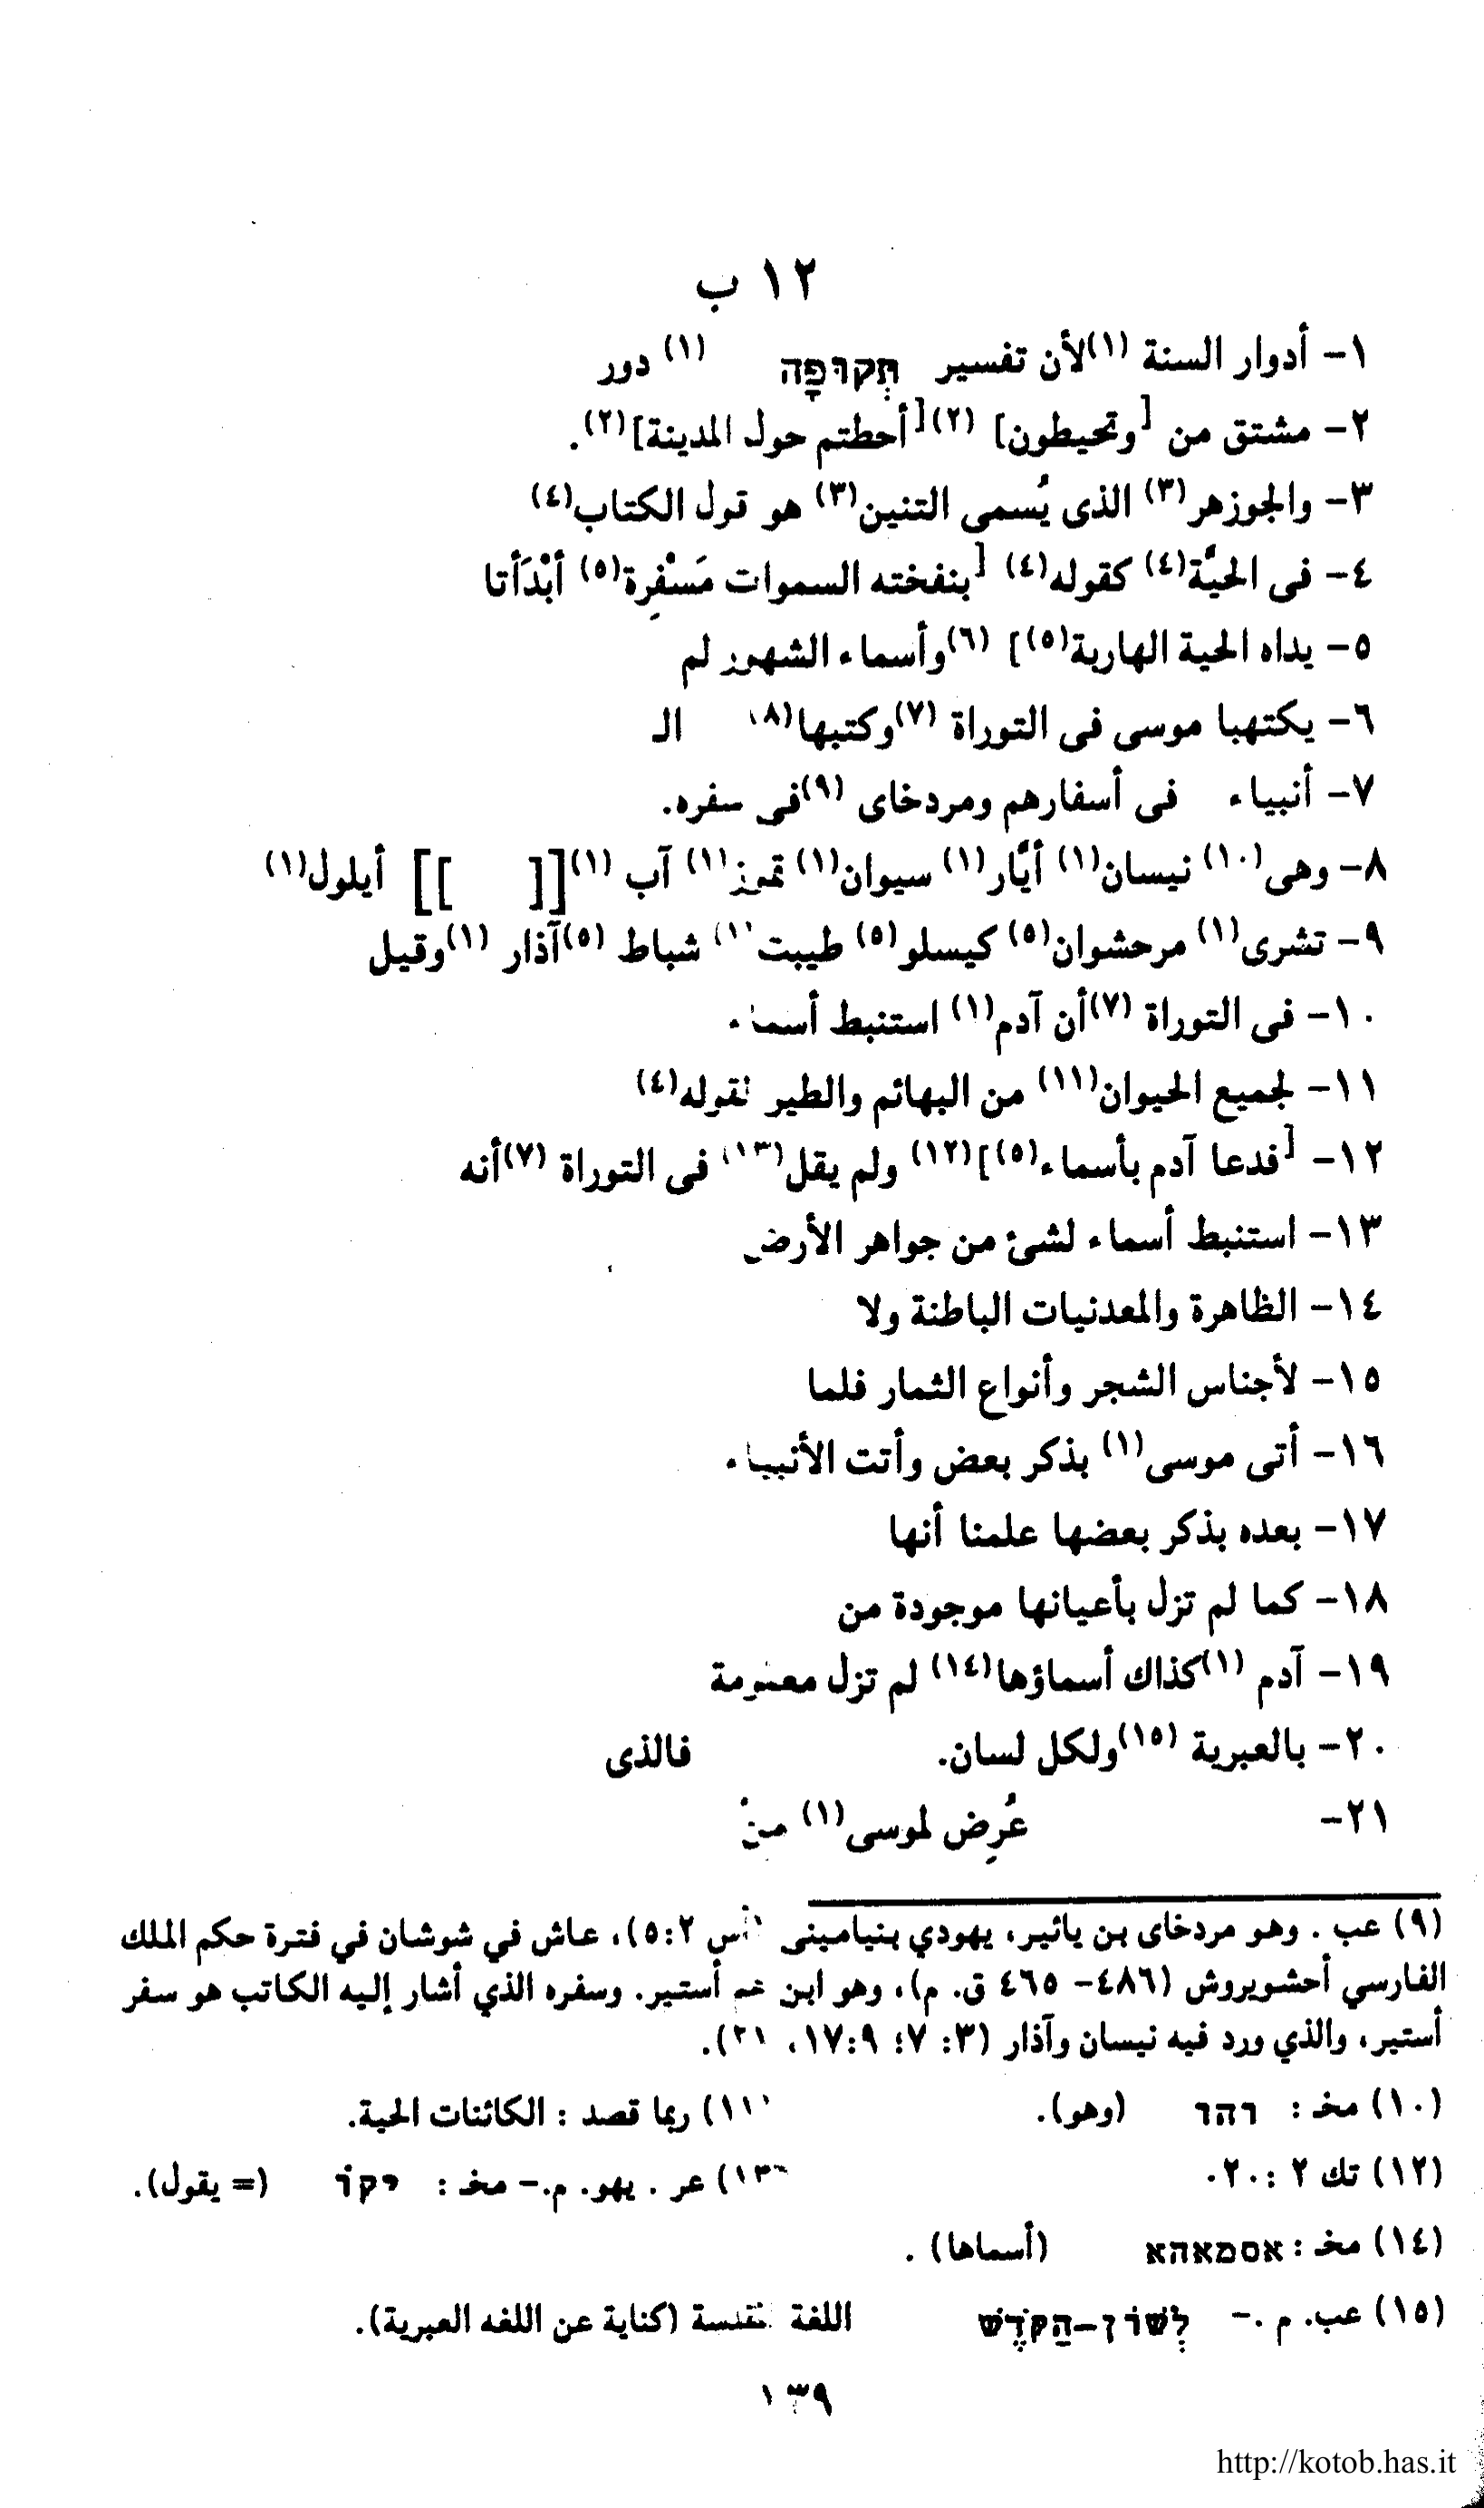 ١٢ ب
١- أدوار السنة (١)لأن تفسير תְקוּפָה (١) دور
٢- مشتق من [وتحيطون] (٢)[أحطتم حول المدينة](٢).
٣- والجوزهر(٣) الذى يُسمى التنين(٣) هو قول الكتاب(٤)
٤- فى الحيَّة(٤) كقوله(٤) [بنفخته السموات مَسْفِرة(٥) أبْدَأتا
٥- يداه الحية الهاربة(٥)] (٦)وأسماء الشهور لم
٦- يكتهبا موسى فى التوراة (٧)وكتبها(٨) الـ
٧- أنبياء فى أسفارهم ومردخاى (٩)فى سفره.
٨- وهى(١٠) نيسان(١) أيَّار(١) سيوان(١) تموز(١) آب (١)[[ ]] أيلول(١)
٩- تشرى(١) مرحشوان(٥) كيسلو(٥) طيبت(١) شباط (٥)آذار (١)وقيل
١٠- فى التوراة (٧)أن آدم(١) استنبط أسماء
١١- لجميع الحيوان(١١) من البهائم والطير لقوله(٤)
١٢- [فدعا آدم بأسماء(٥)](١٢) ولم يقل(١٣) فى التوراة (٧)أنه
١٣- استنبط أسماء لشئ من جواهر الأرض
١٤- الظاهرة والمعدنيات الباطنة ولا
١٥- لأجناس الشجر وأنواع الثمار فلما
١٦- أتى موسى(١) بذكر بعض وأتت الأنبياء
١٧- بعده بذكر بعضها علمنا أنها
١٨- كما لم تزل بأعيانها موجودة من
١٩- آدم (١)كذاك أسماؤها(١٤) لم تزل معلومة
٢٠- بالعبرية (١٥)ولكل لسان. فالذى
٢١- عُرِض لموسى(١) من
(٩) عب . وهو مردخاى بن يائير، يهودي بنيامينى (أس ٥:٢)، عاش في شوشان في فترة حكم الملك
الفارسي أحشويروش (٤٨٦- ٤٦٥ ق. م)، وهو ابن عم أستير. وسفره الذي أشار إليه الكاتب هو سفر
أستير، والذي ورد فيه نيسان وآذار (٣: ٧؛ ١٧:٩، ٢١).
(١٠) مخـ : והו (وهو). (١١) ربما قصد : الكائنات الحية.
(١٢) تك ٢ :٢٠. (١٣) عر . يهو. م.- مخـ : יקוֹ (= يقول).
(١٤) مخـ : אסמאהא (أسماها) .
(١٥) عب. م .- לְשׁוֹן-הַקֹּדֶשׁ اللغة المقدسة (كناية عن اللغه العبرية).
١٣٩
http://kotob.has.it